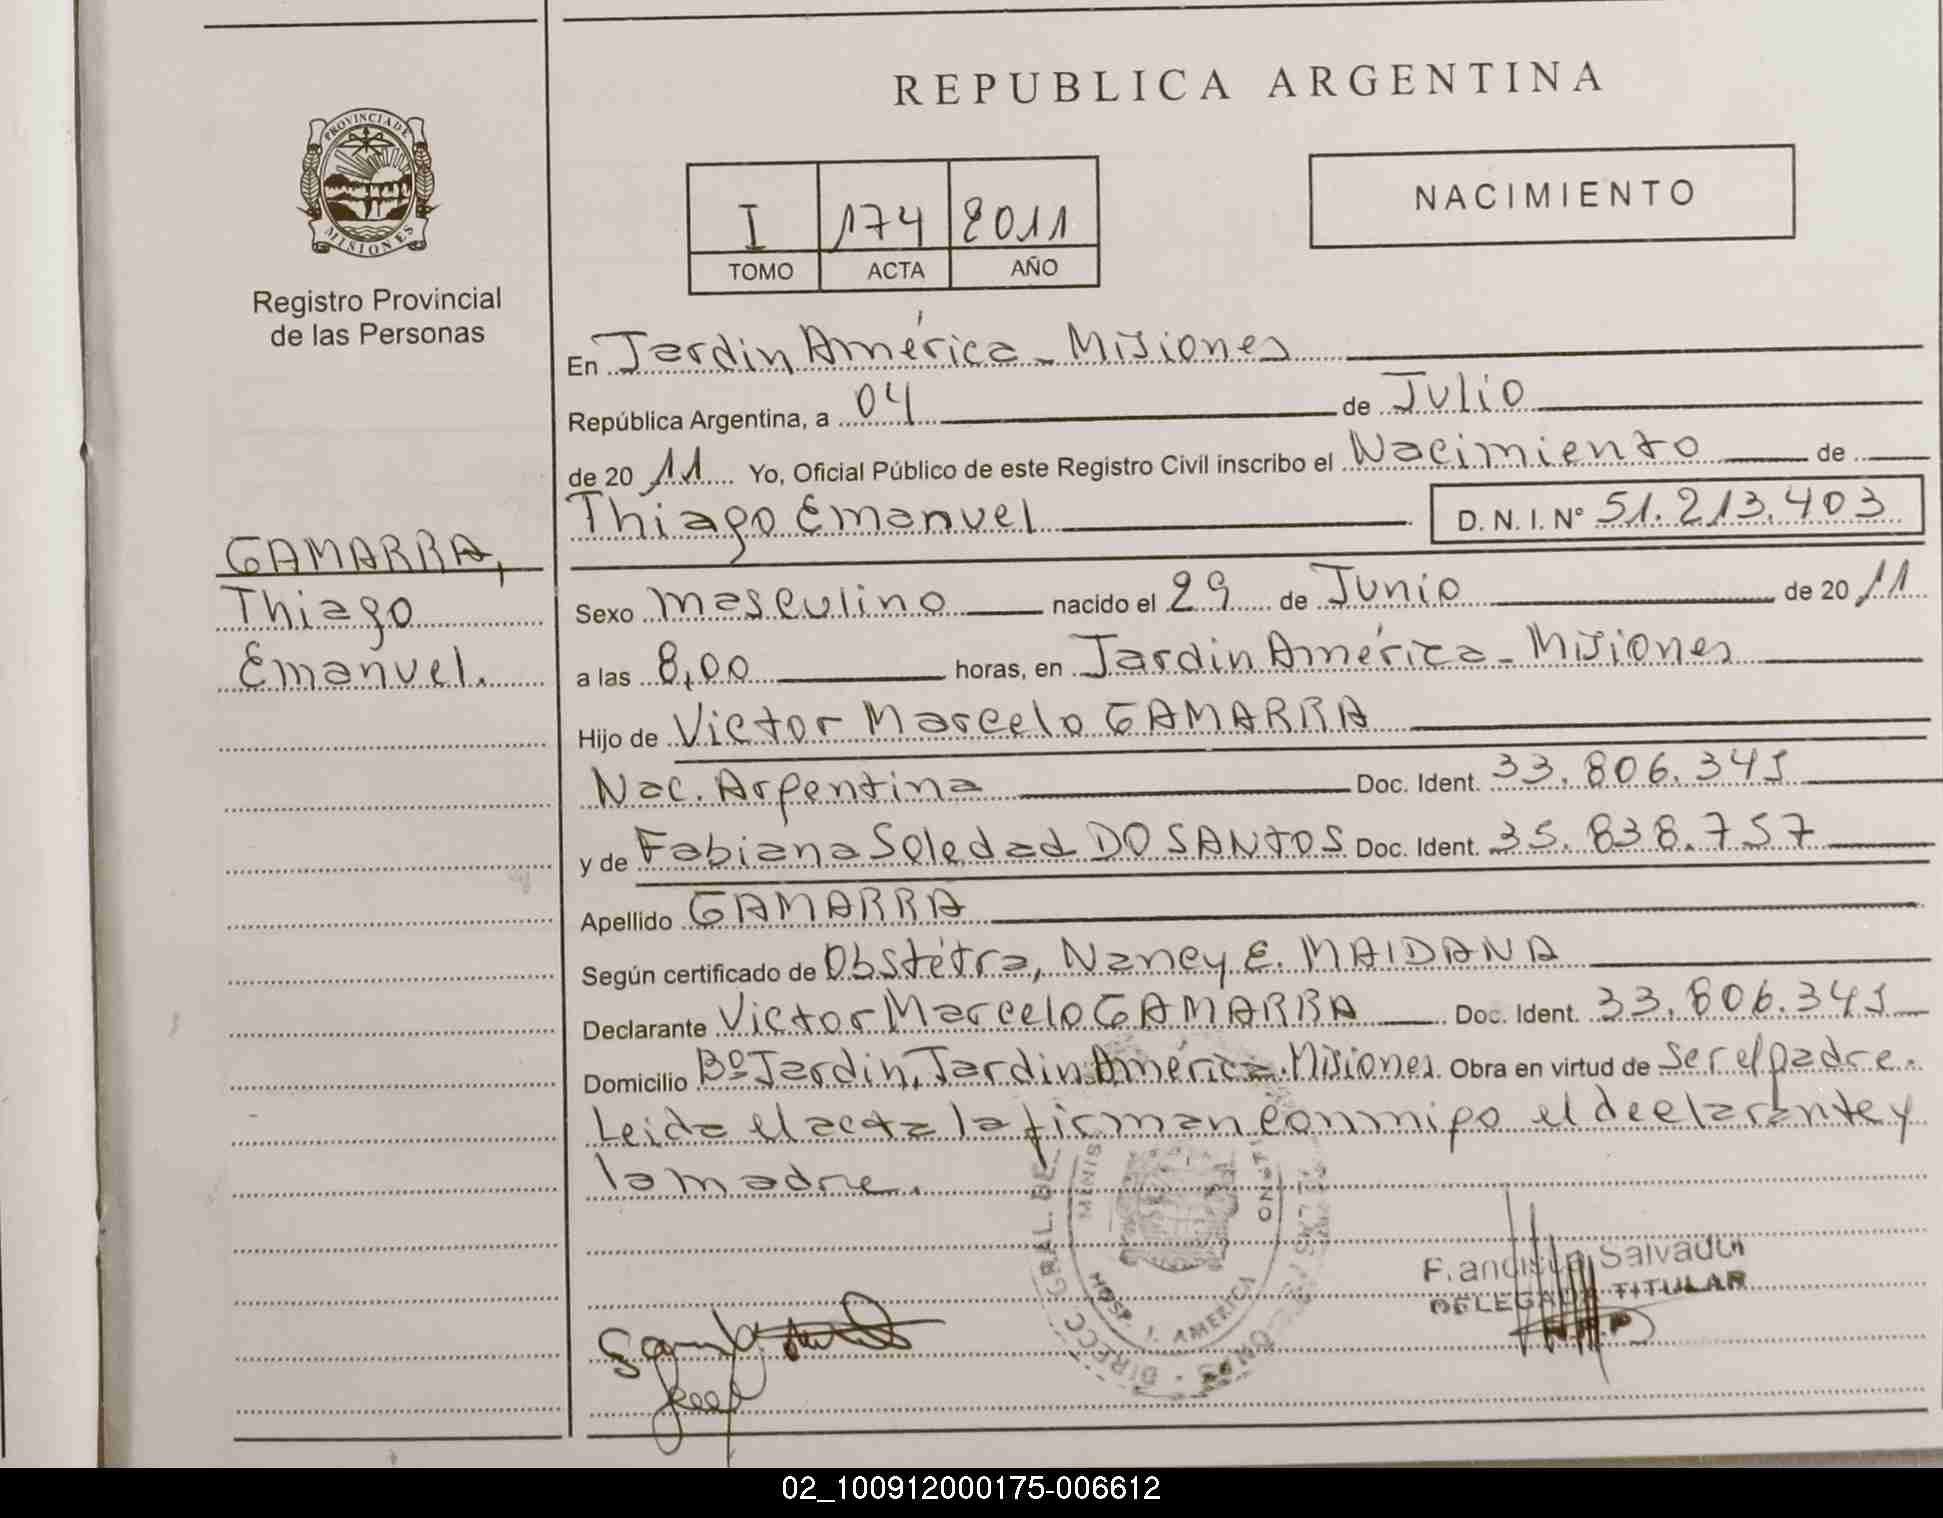 REPUBLICA ARGENTINA
PROVINCIA DE
MISIONES
Registro Provincial
de las Personas
NACIMIENTO
I 174 2011
TOMO ACTA AÑO
En Jardin América - Misiones
República Argentina, a 04 de Julio
de 20 11 Yo, Oficial Público de este Registro Civil inscribo el Nacimiento de
Thiago Emanuel D. N. I. Nº 51.213.403
GAMARRA,
Thiago
Emanuel.
Sexo masculino nacido el 29 de Junio de 20 11
a las 8,00 horas, en Jardin América - Misiones
Hijo de Victor Marcelo GAMARRA
Nac. Argentina Doc. Ident. 33.806.341
y de Fabiana Soledad DO SANTOS Doc. Ident. 35.838.757
Apellido GAMARRA
Según certificado de Obstétra, Nancy E. MAIDANA
Declarante Victor Marcelo GAMARRA Doc. Ident. 33.806.341
Domicilio Bº Jardin, Jardin América - Misiones Obra en virtud de ser el padre.
Leida el acta la firman conmigo el declarante y
la madre.
DIRECC GRAL. DE
MINIS
HOSP. J. AMERICA
Salvador
TITULAR
02_100912000175-006612